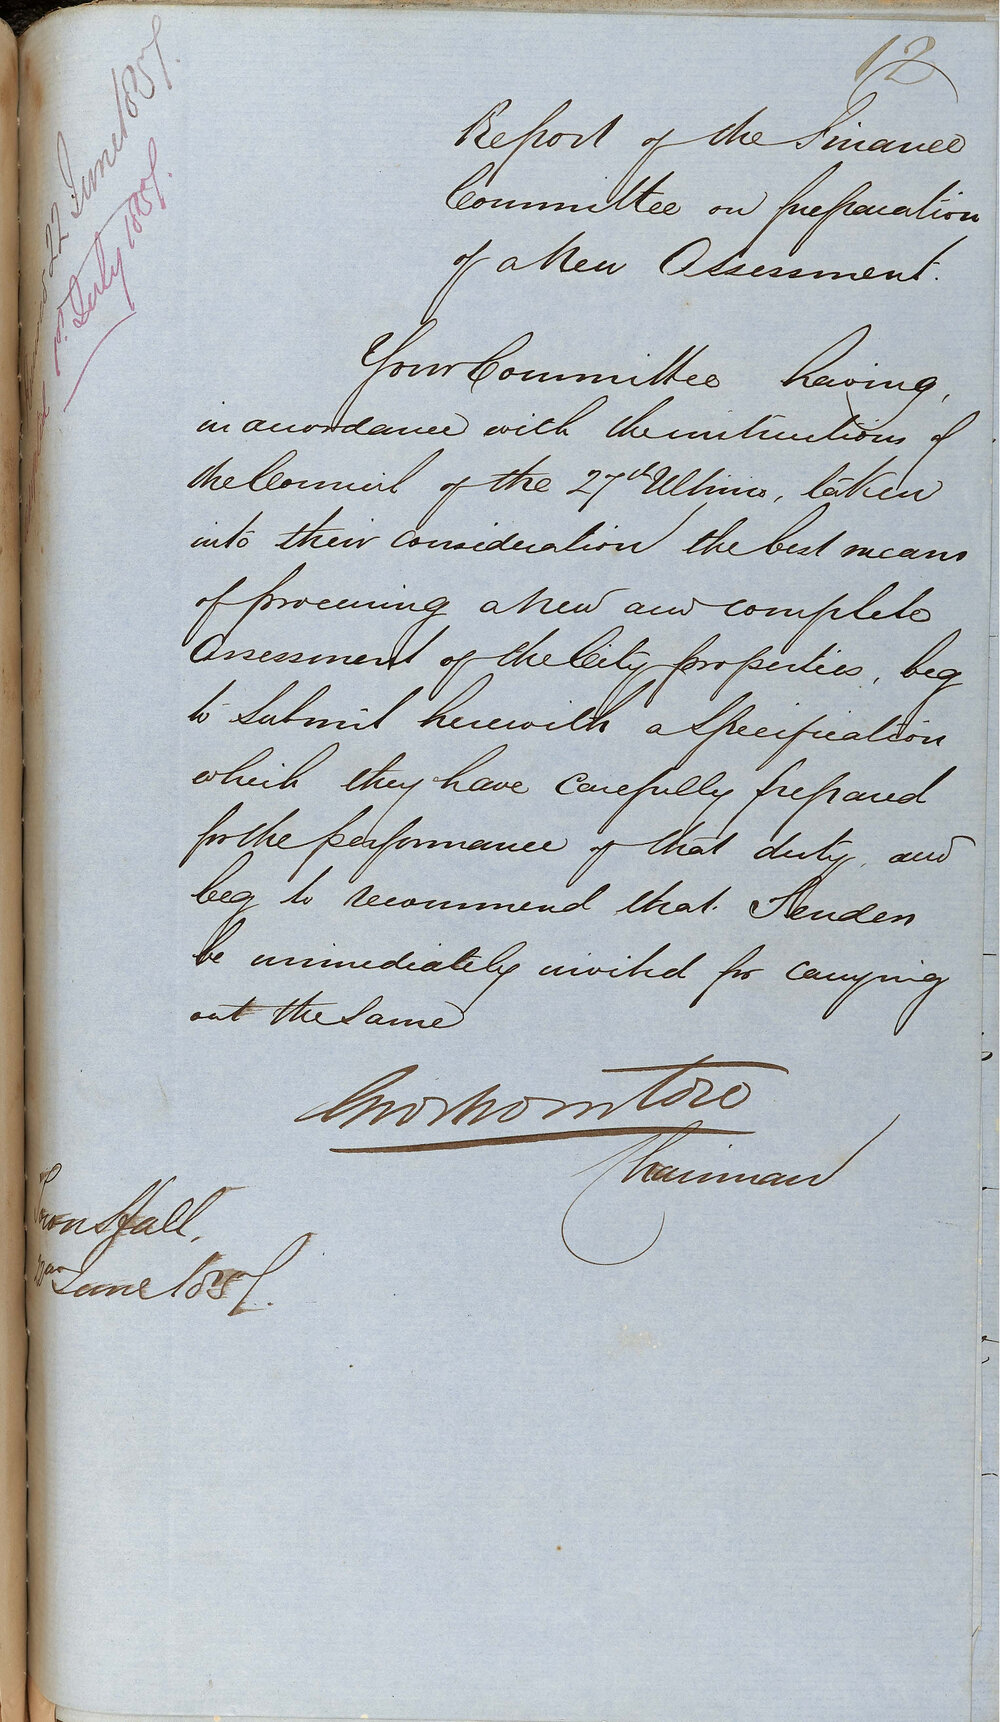 12
22 June 1857.
1st. July 1857.
Report of the Finance
Committee on preparation
of a New Assessment.
Your Committee having,
in accordance with the instructions of
the Council of the 27th Ultimo, taken
into their consideration the best means
of procuring a New and complete
Assessment of the City properties, beg
to submit herewith a Specification
which they have carefully prepared
for the performance of that duty, and
beg to recommend that Tenders
be immediately invited for carrying
out the same
Chairman
Town Hall,
June 1857.